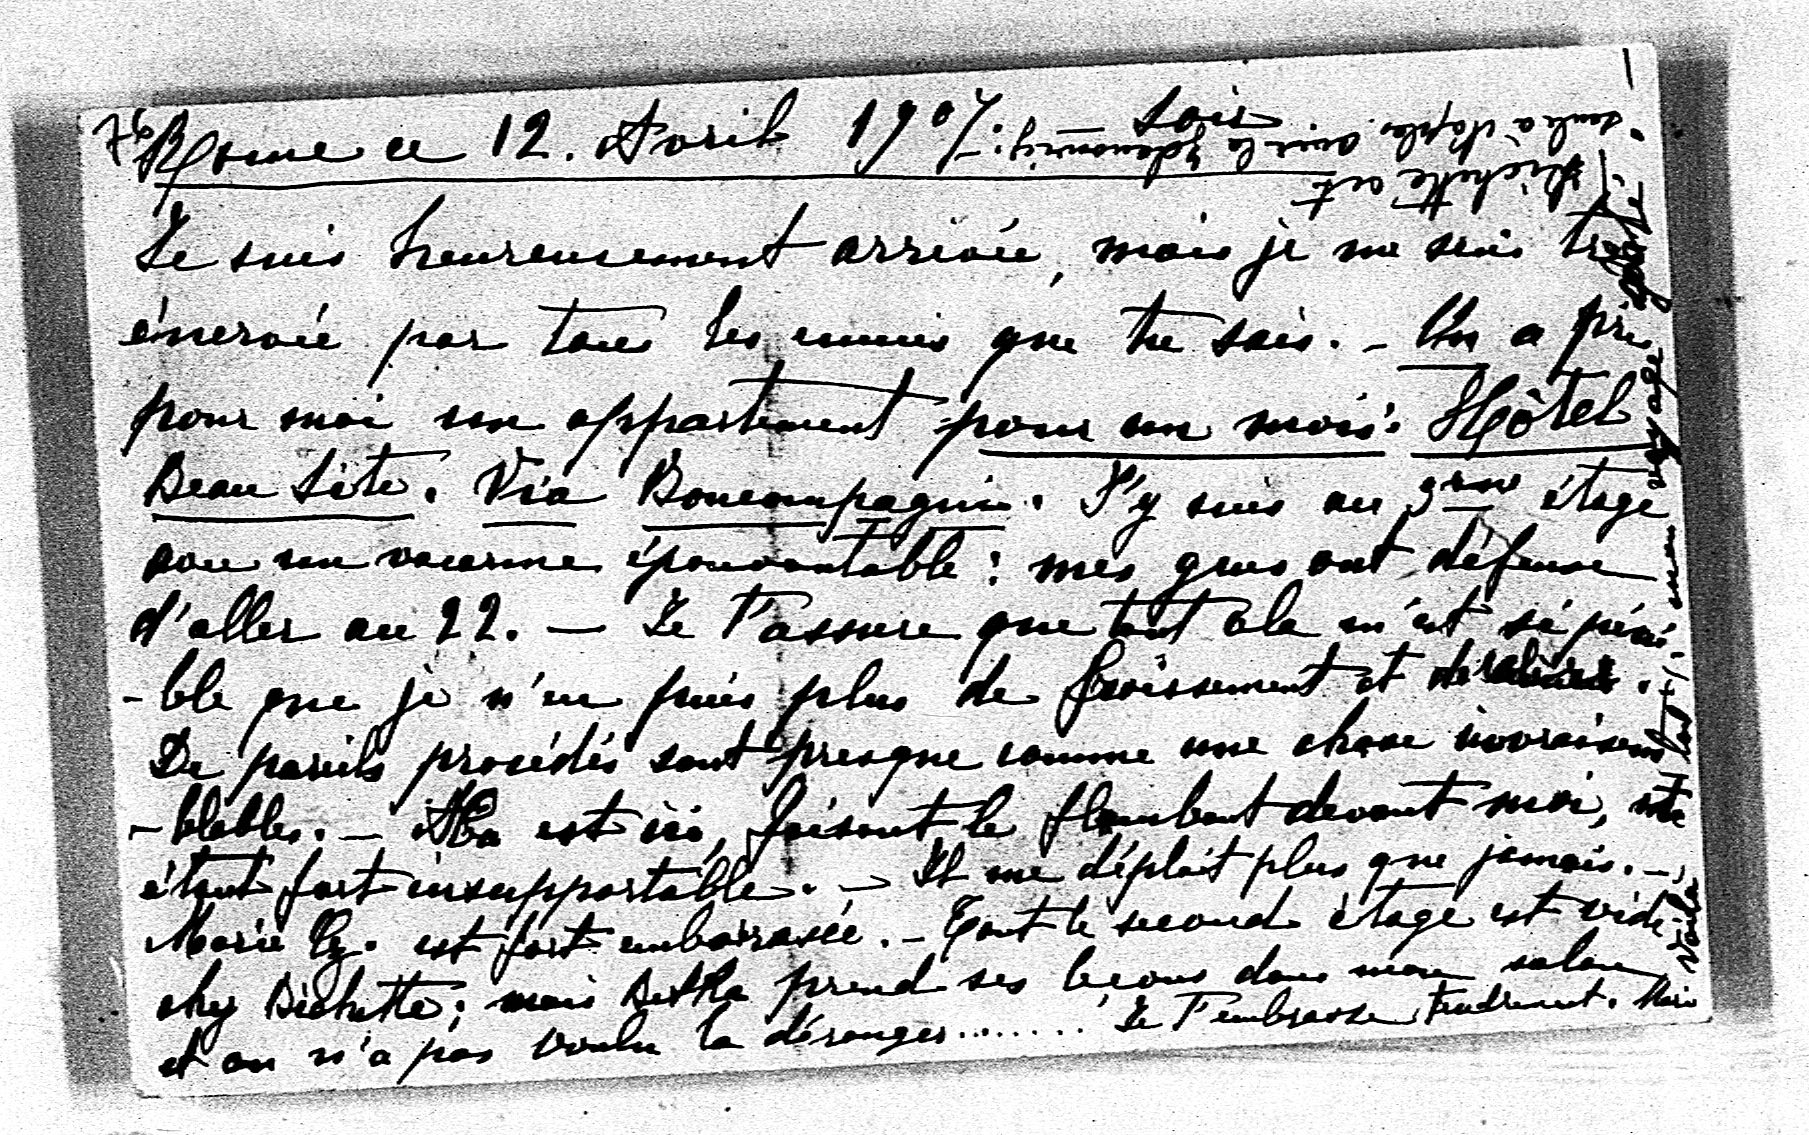 Rome ce 12. Avril 1907. – soir
Je suis heureusement arrivée, mais je me sens très
énervée par tous les ennuis que tu sais. – On a pris
pour moi un appartement pour un mois: Hôtel
Beau Site. Via Boncompagni. J'y suis au 3me étage
dans un vacarme épouvantable: mes gens ont défense
d'aller au 22. – Je t'assure que tout cela m'est si péni-
-ble que je n'en puis plus de froissement et de
De pareils procédés sont presque comme une chose invraisem
-blables. – est ici, faisant le flambant devant moi, et
étant fort insupportable. – Il me déplait plus que jamais. –
Marie est fort embarrassée. – Tout le second étage est vide
chez Bichette; mais prend ses leçons dans mon salon
et on n'a pas voulu la déranger....... Je t'embrasse tendrement. Marie
Bichette est
seule à Naples avec la
voyage